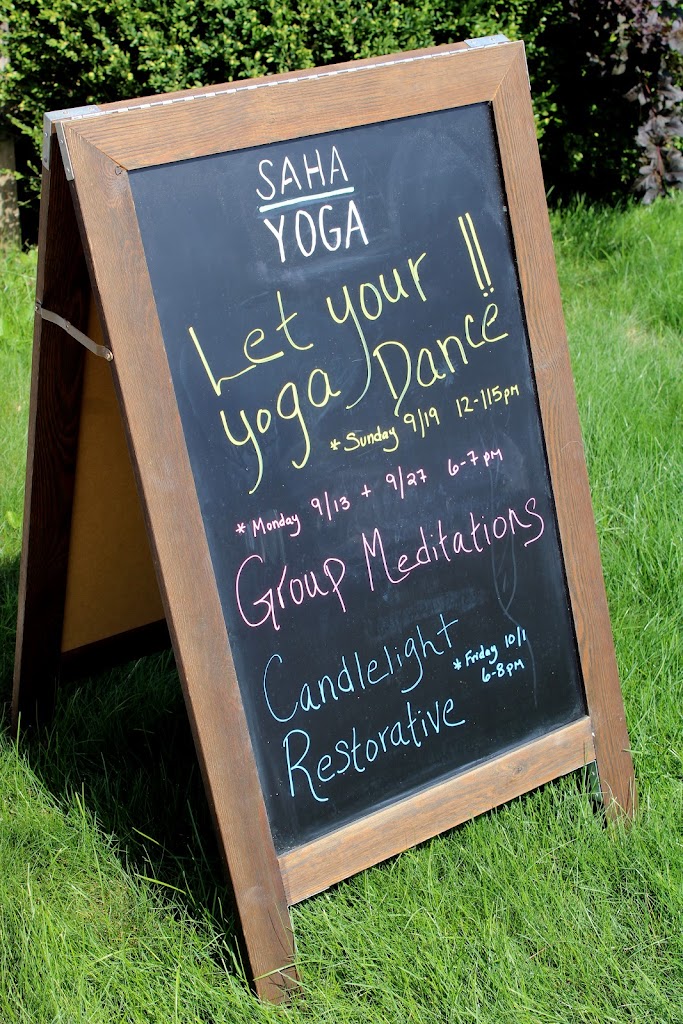 SAHA
YOGA
Let your !!
yoga Dance
*Sunday 9/19 12-115pm
*Monday 9/13 + 9/27 6-7pm
Group Meditations
Candlelight
*Friday 10/1
6-8pm
Restorative